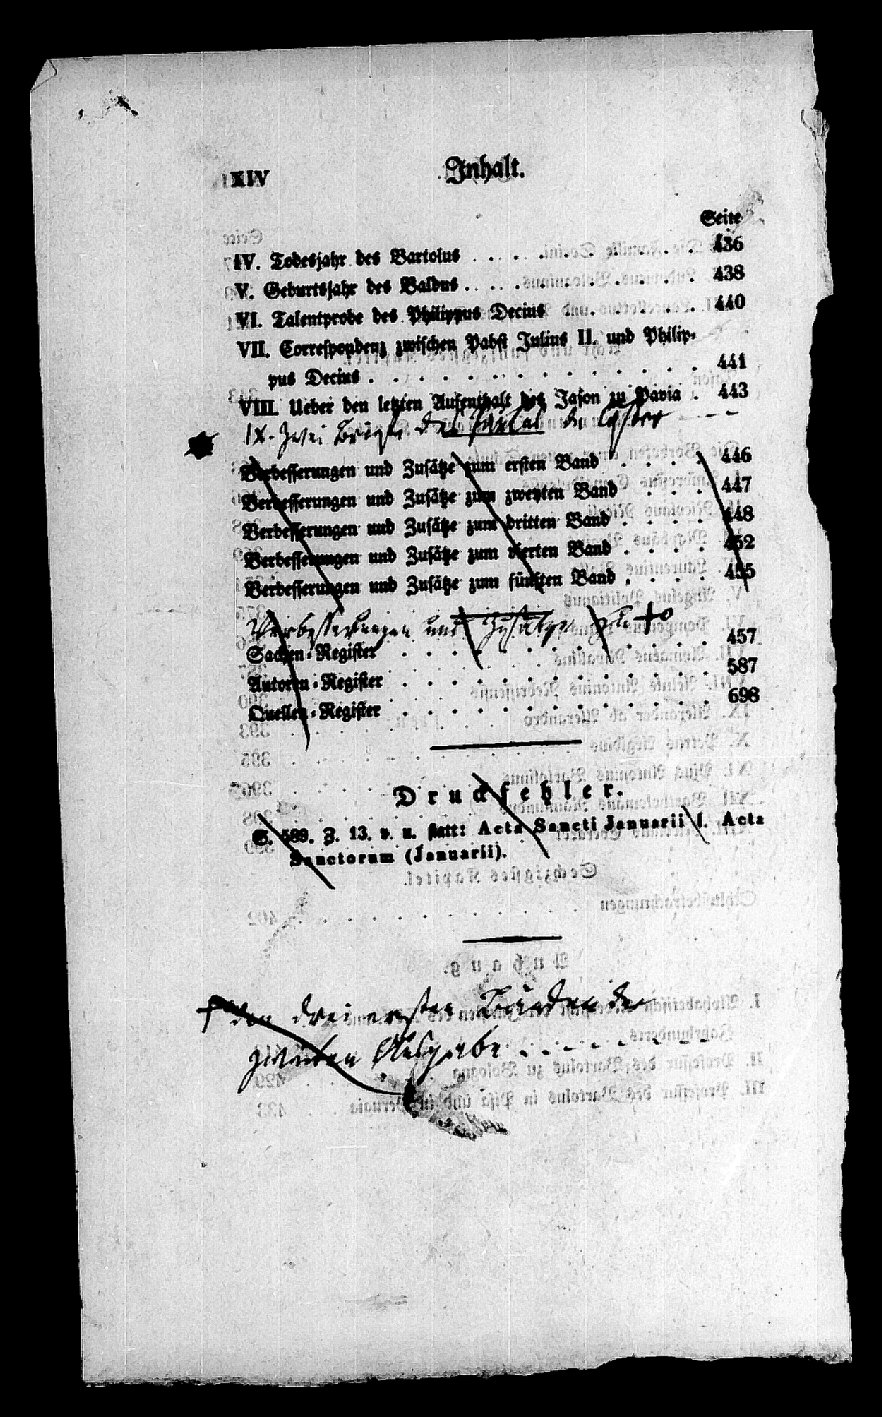 XIV Inhalt.
Seite
IV. Todesjahr des Bartolus . . . . . . . . . . 436
V. Geburtsjahr des Baldus . . . . . . . . . . 438
VI. Talentprobe des Philippus Decius . . . . . . 440
VII. Correspondenz zwischen Pabst Julius II. und Philip-
pus Decius . . . . . . . . . . . . . . 441
VIII. Ueber den letzten Aufenthalt des Jason zu Pavia . 443
IX. Zwei Briefe des Paulus de Castro - - - -
Verbesserungen und Zusätze zum ersten Band . . . . 446
Verbesserungen und Zusätze zum zweyten Band . . . . 447
Verbesserungen und Zusätze zum dritten Band . . . . 448
Verbesserungen und Zusätze zum vierten Band . . . . 452
Verbesserungen und Zusätze zum fünften Band . . . . 455
Verbesserungen und Zusätze zu
Sachen-Register . . . . . . . . . . . . 457
Autoren-Register . . . . . . . . . . . . 587
Quellen-Register . . . . . . . . . . . . 698
Druckfehler.
S. 569. Z. 13. v. u. statt: Acta Sancti Januarii l. Acta
Sanctorum (Januarii).
den drei ersten Bänden der
zweiten Ausgabe - - - - - - - -